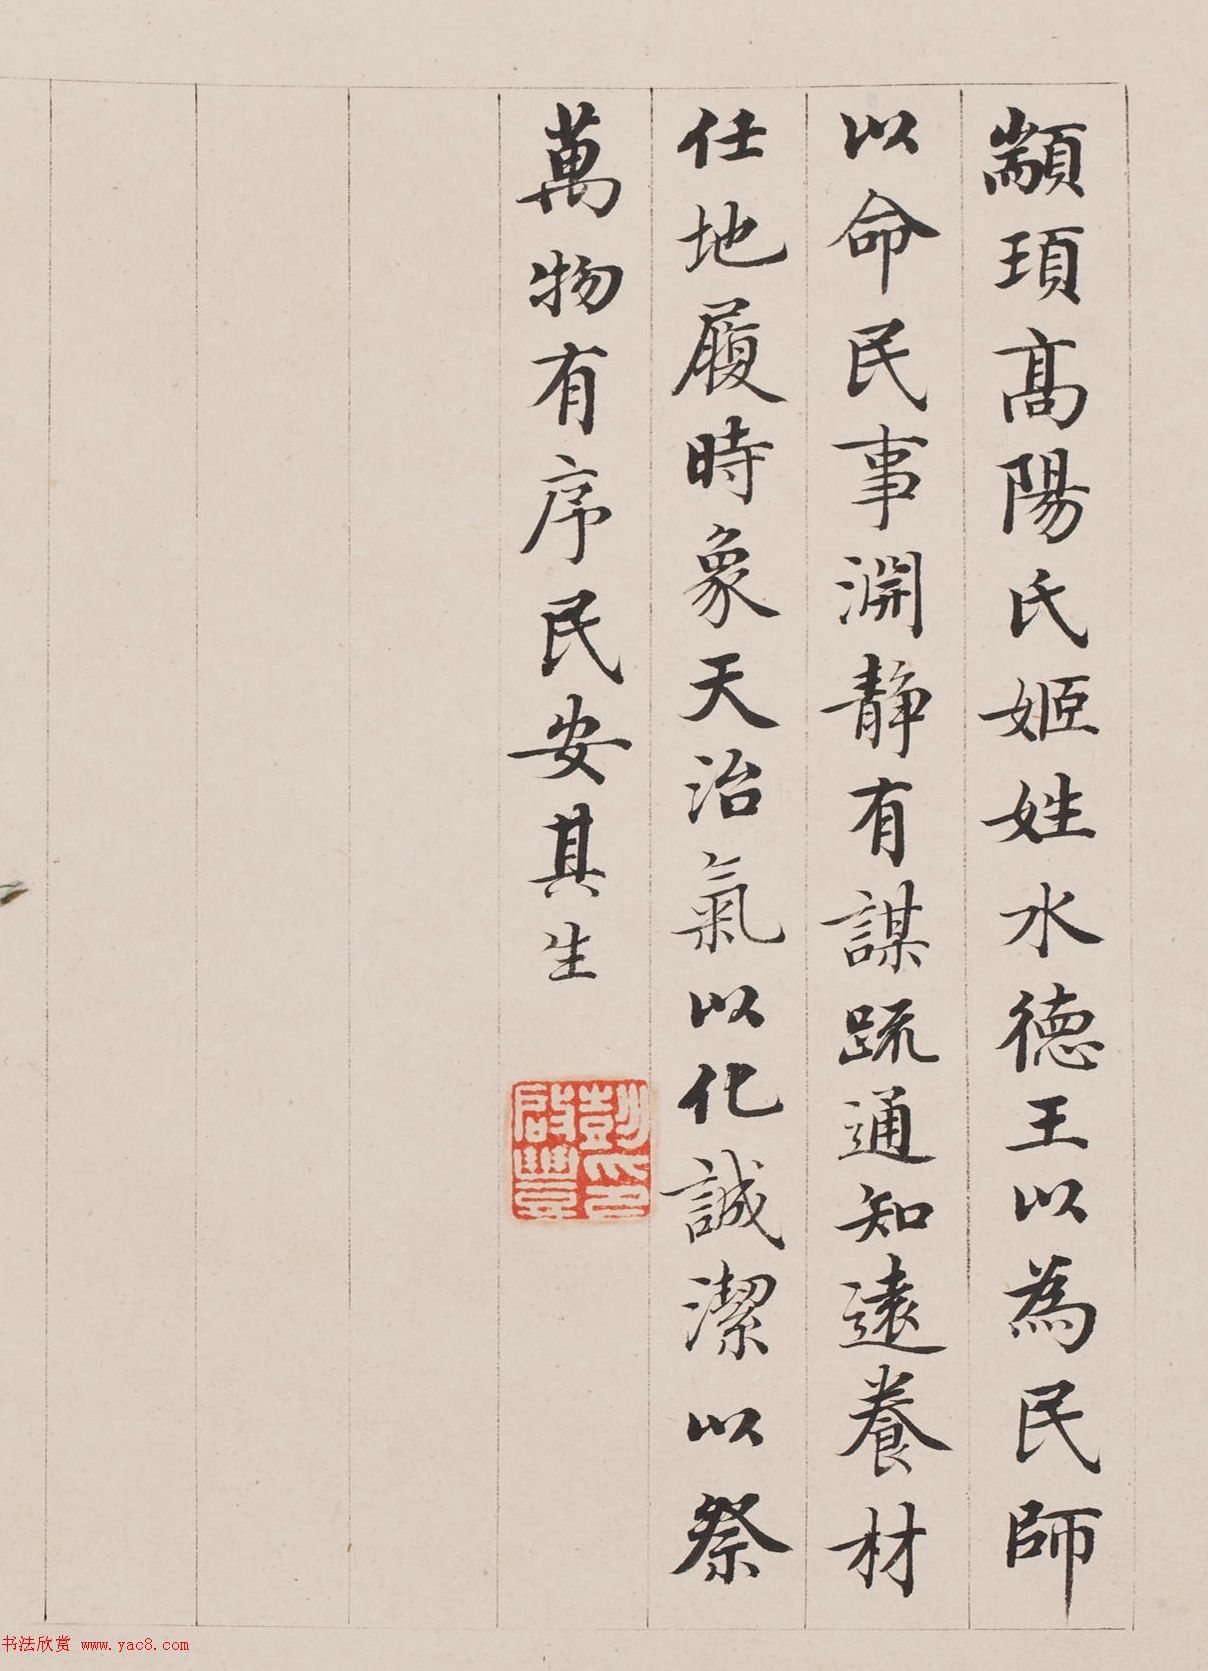 顓頊高陽氏姬姓水德王以為民師
以命民事淵靜有謀疏通知遠養材
任地履時象天治氣以化誠潔以祭
萬物有序民安其生
彭啟豐印
书法欣赏 www.yac8.com